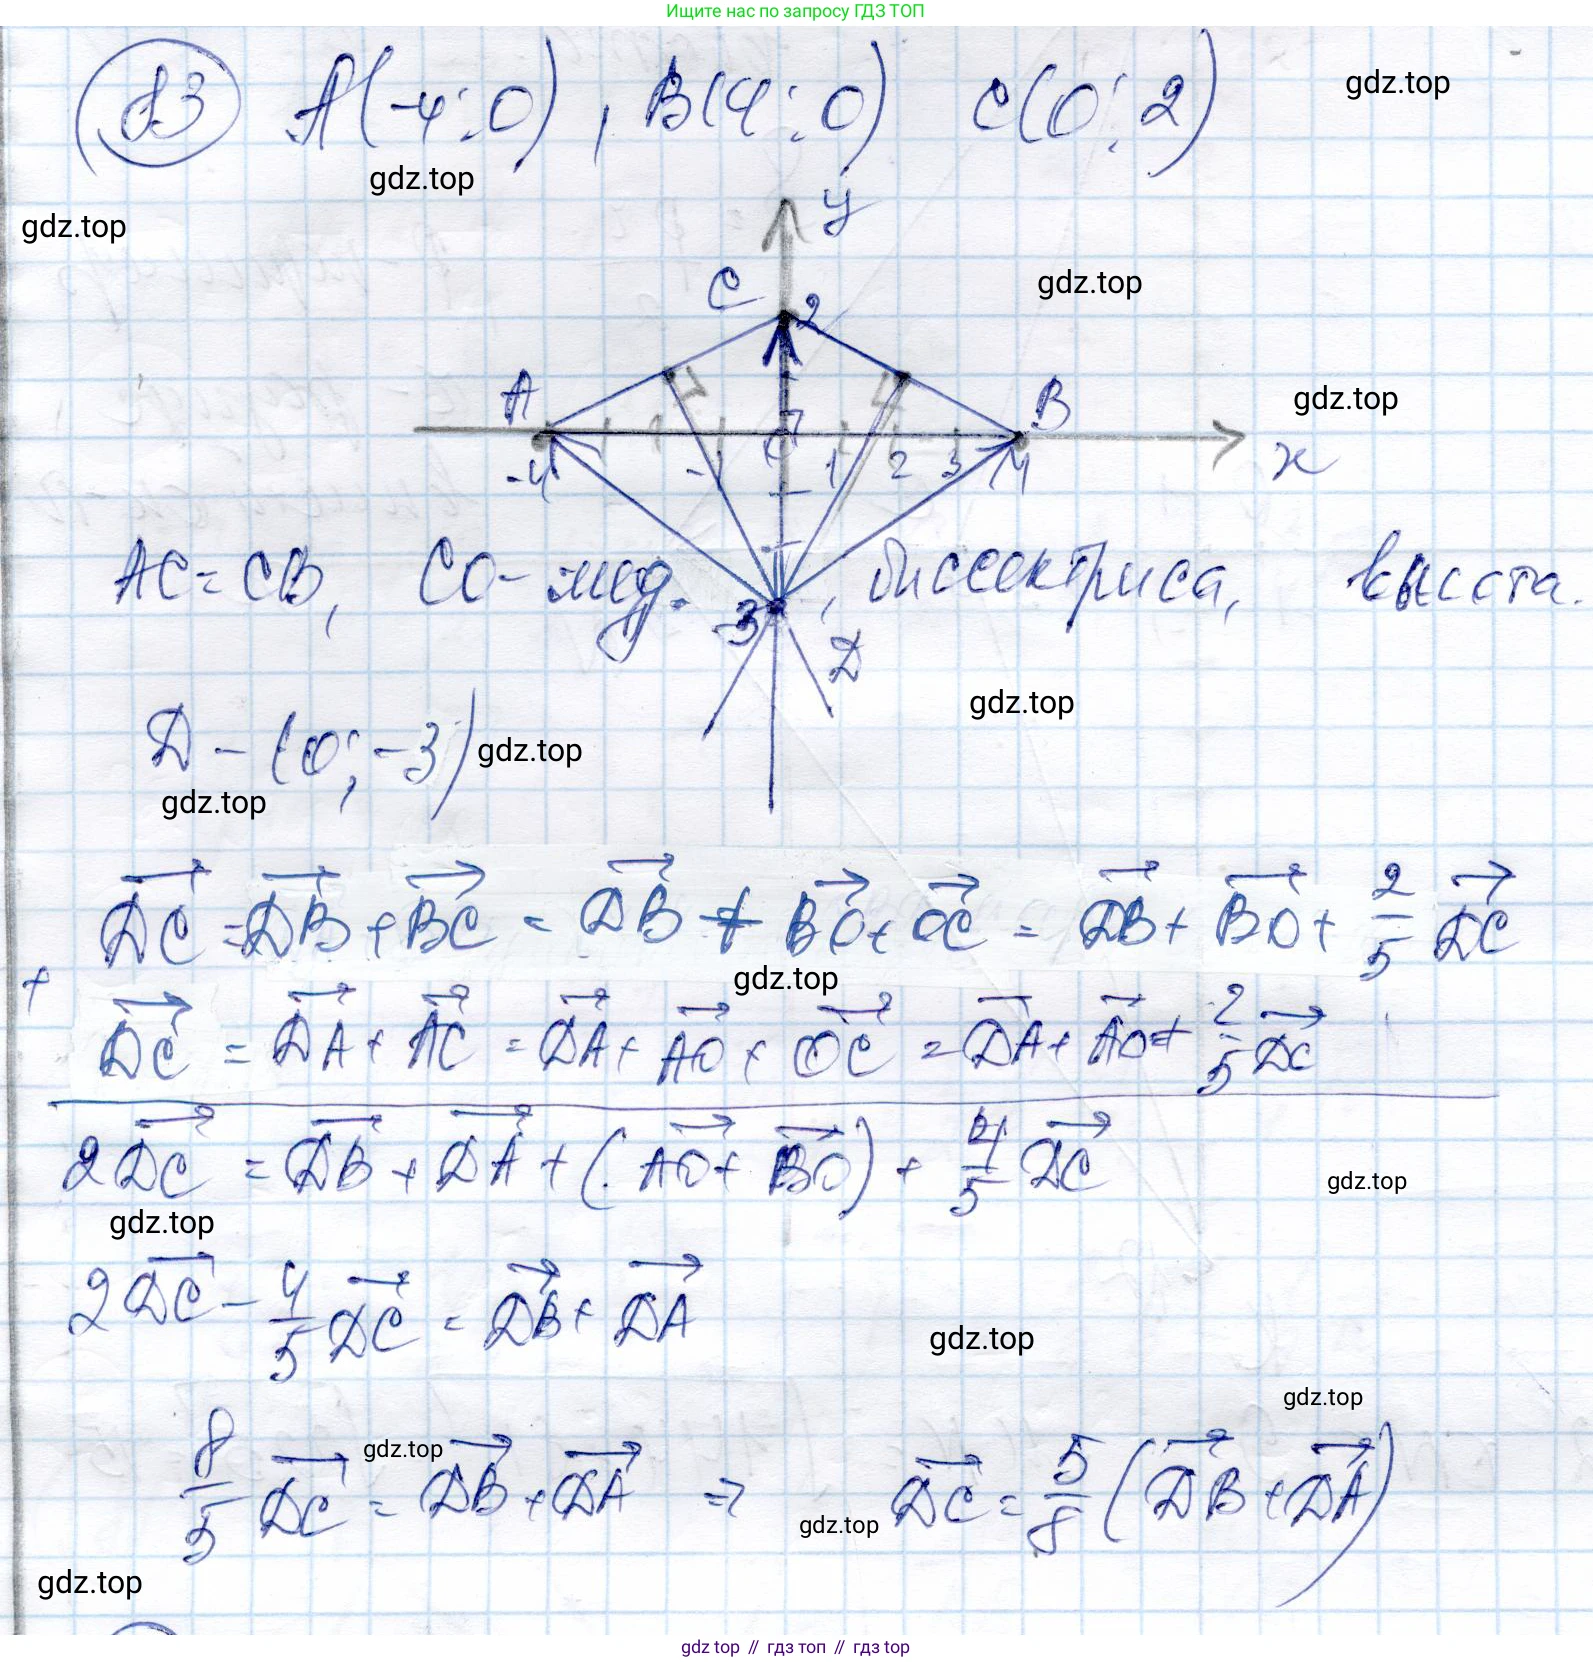 Ищите нас по запросу ГДЗ ТОП
83 A(-4; 0), B(4; 0) C(0; 2)
gdz.top
gdz.top
gdz.top
y
gdz.top
C 2
A B
gdz.top
-4 -1 0 1 2 3 4 x
AC = CB, CO - мед., биссектриса, высота.
-3 D
gdz.top
D - (0; -3)
gdz.top
gdz.top
DC = DB + BC = DB + BO + OC = DB + BO + 2/5 DC
gdz.top
+
DC = DA + AC = DA + AO + OC = DA + AO + 2/5 DC
2DC = DB + DA + (AO + BO) + 4/5 DC
gdz.top
gdz.top
2DC - 4/5 DC = DB + DA
gdz.top
gdz.top
8/5 DC = DB + DA ⇒ DC = 5/8 (DB + DA)
gdz.top
gdz.top
gdz.top
gdz top // гдз топ // гдз top